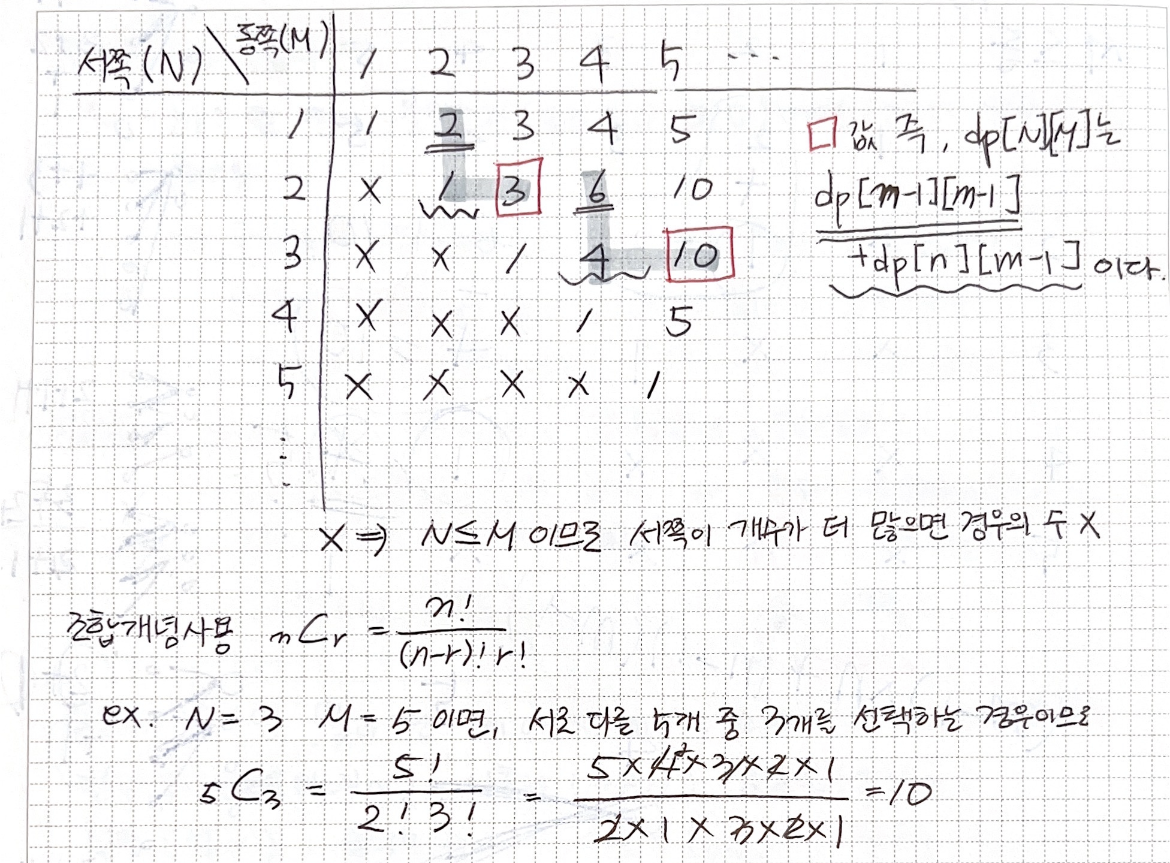 서쪽(N) \ 동쪽(M) 1 2 3 4 5 ...
1 1 2 3 4 5
2 X 1 3 6 10
3 X X 1 4 10
4 X X X 1 5
5 X X X X 1
⋮
□ 값 즉, dp[N][M]는
dp[m-1][m-1]
+dp[n][m-1] 이다.
X ⇒ N≤M 이므로 서쪽이 개수가 더 많으면 경우의 수 X
조합개념사용 nCr = n! / (n-r)! r!
ex. N = 3 M = 5 이면, 서로 다른 5개 중 3개를 선택하는 경우이므로
5C3 = 5! / 2! 3! = 5×4²×3×2×1 / 2×1×3×2×1 = 10